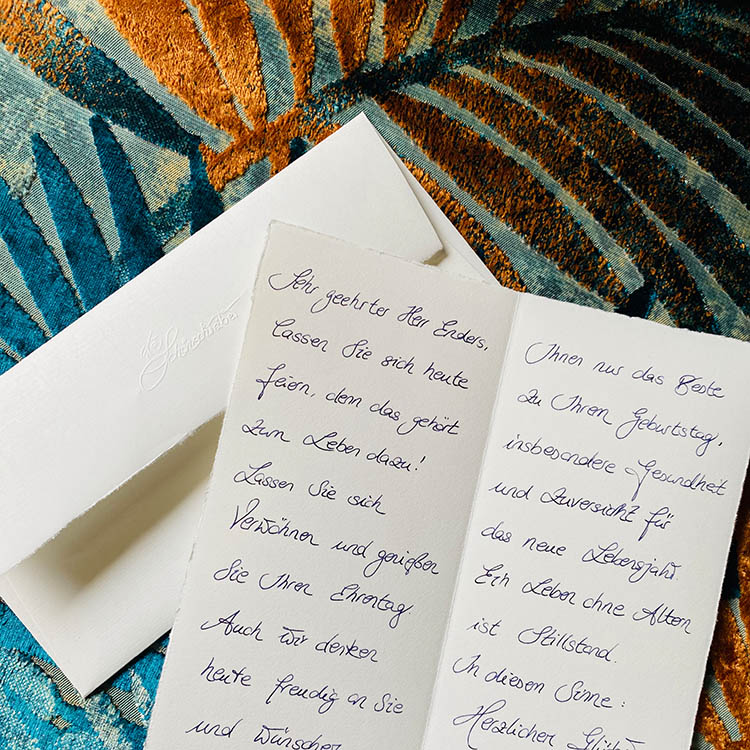 die
Schönschreibe
Sehr geehrter Herr Enders,
lassen Sie sich heute
feiern, denn das gehört
zum Leben dazu!
Lassen Sie sich
Verwöhnen und genießen
Sie Ihren Ehrentag.
Auch wir denken
heute freudig an Sie
und wünschen
Ihnen nur das Beste
zu Ihrem Geburtstag,
insbesondere Gesundheit
und Zuversicht für
das neue Lebensjahr.
Ein Leben ohne Altern
ist Stillstand.
In diesem Sinne:
Herzlichen